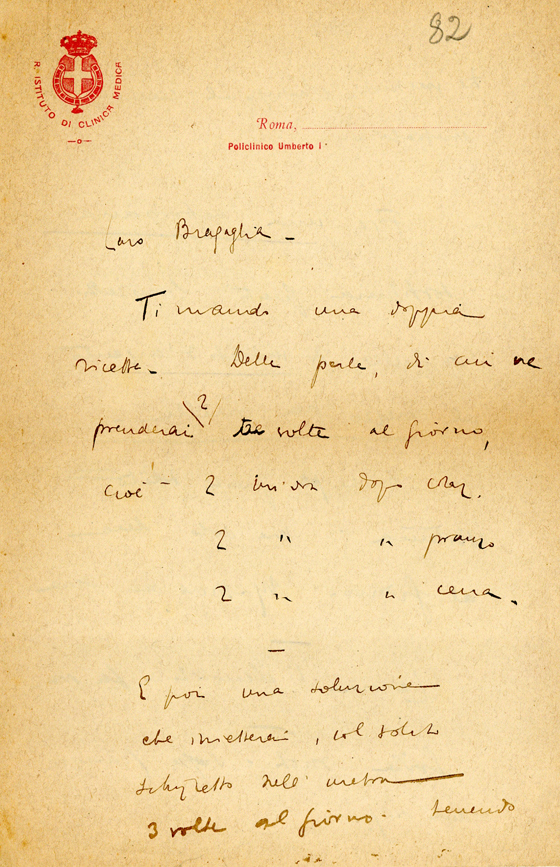 82
R. ISTITUTO DI CLINICA MEDICA
Roma,
Policlinico Umberto I°
Caro Bragaglia -
Ti mando una doppia
ricetta. Delle perle, di cui ne
prenderai 2 tre volte al giorno,
cioè - 2 un'ora dopo colaz.
2 " " pranzo
2 " " cena.
E poi una soluzione
che inietterai, col solito
schizzetto nell' uretra
3 volte al giorno. tenendo